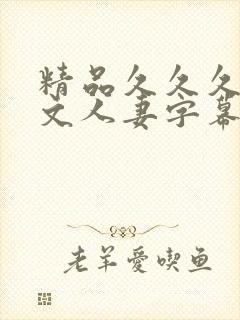 精品久久久
文人妻字幕
老羊愛喫鱼